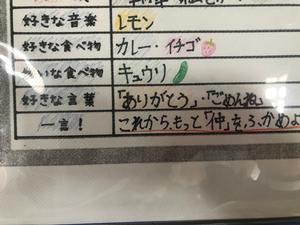 好きな音楽 レモン
好きな食べ物 カレー・イチゴ
いな食べ物 キュウリ
好きな言葉 「ありがとう」・「ごめんね」
一言! これから、もっと「仲」を、ふかめよ